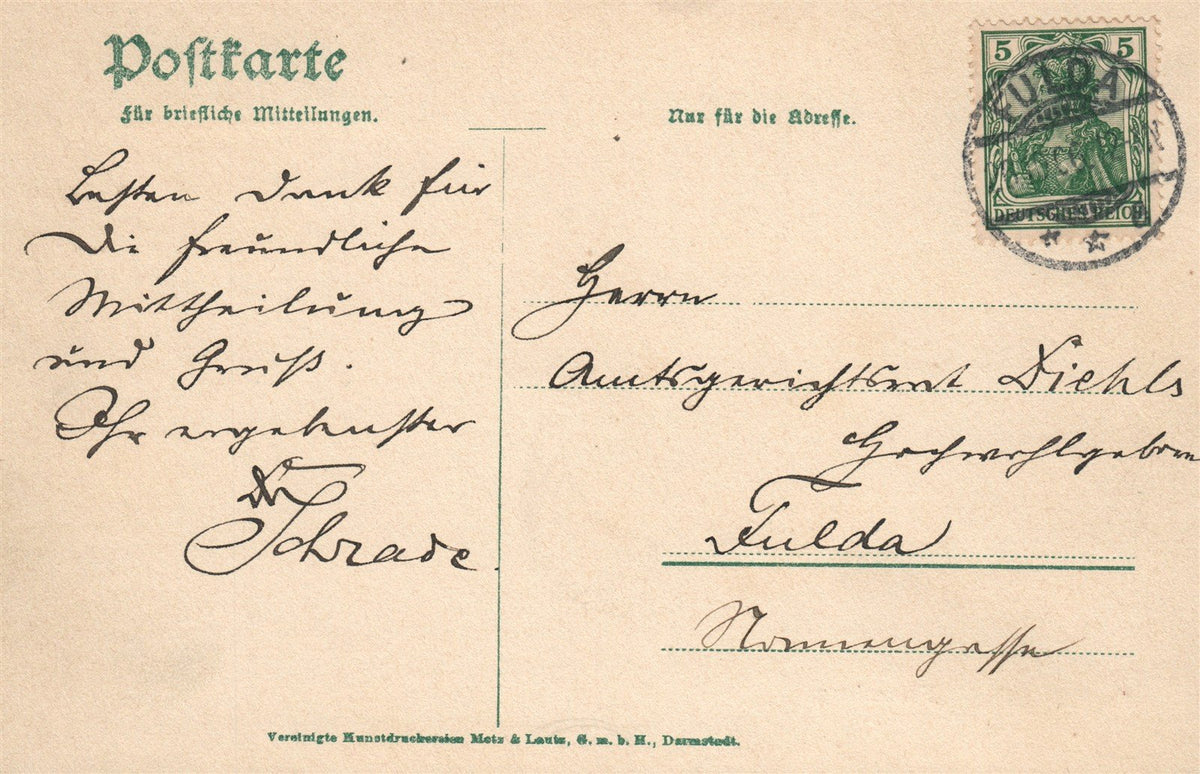 Postkarte
Für briefliche Mitteilungen.
Nur für die Adresse.
5 5
FULDA
DEUTSCHES REICH
Besten Dank für
die freundliche
Mittheilung
und Gruß.
Ihr ergebenster
Dr
Schrade.
Herrn
Amtsgerichtsrat Diehls
Hochwohlgeboren
Fulda
Nonnengasse
Vereinigte Kunstdruckereien Metz & Lautz, G. m. b. H., Darmstadt.